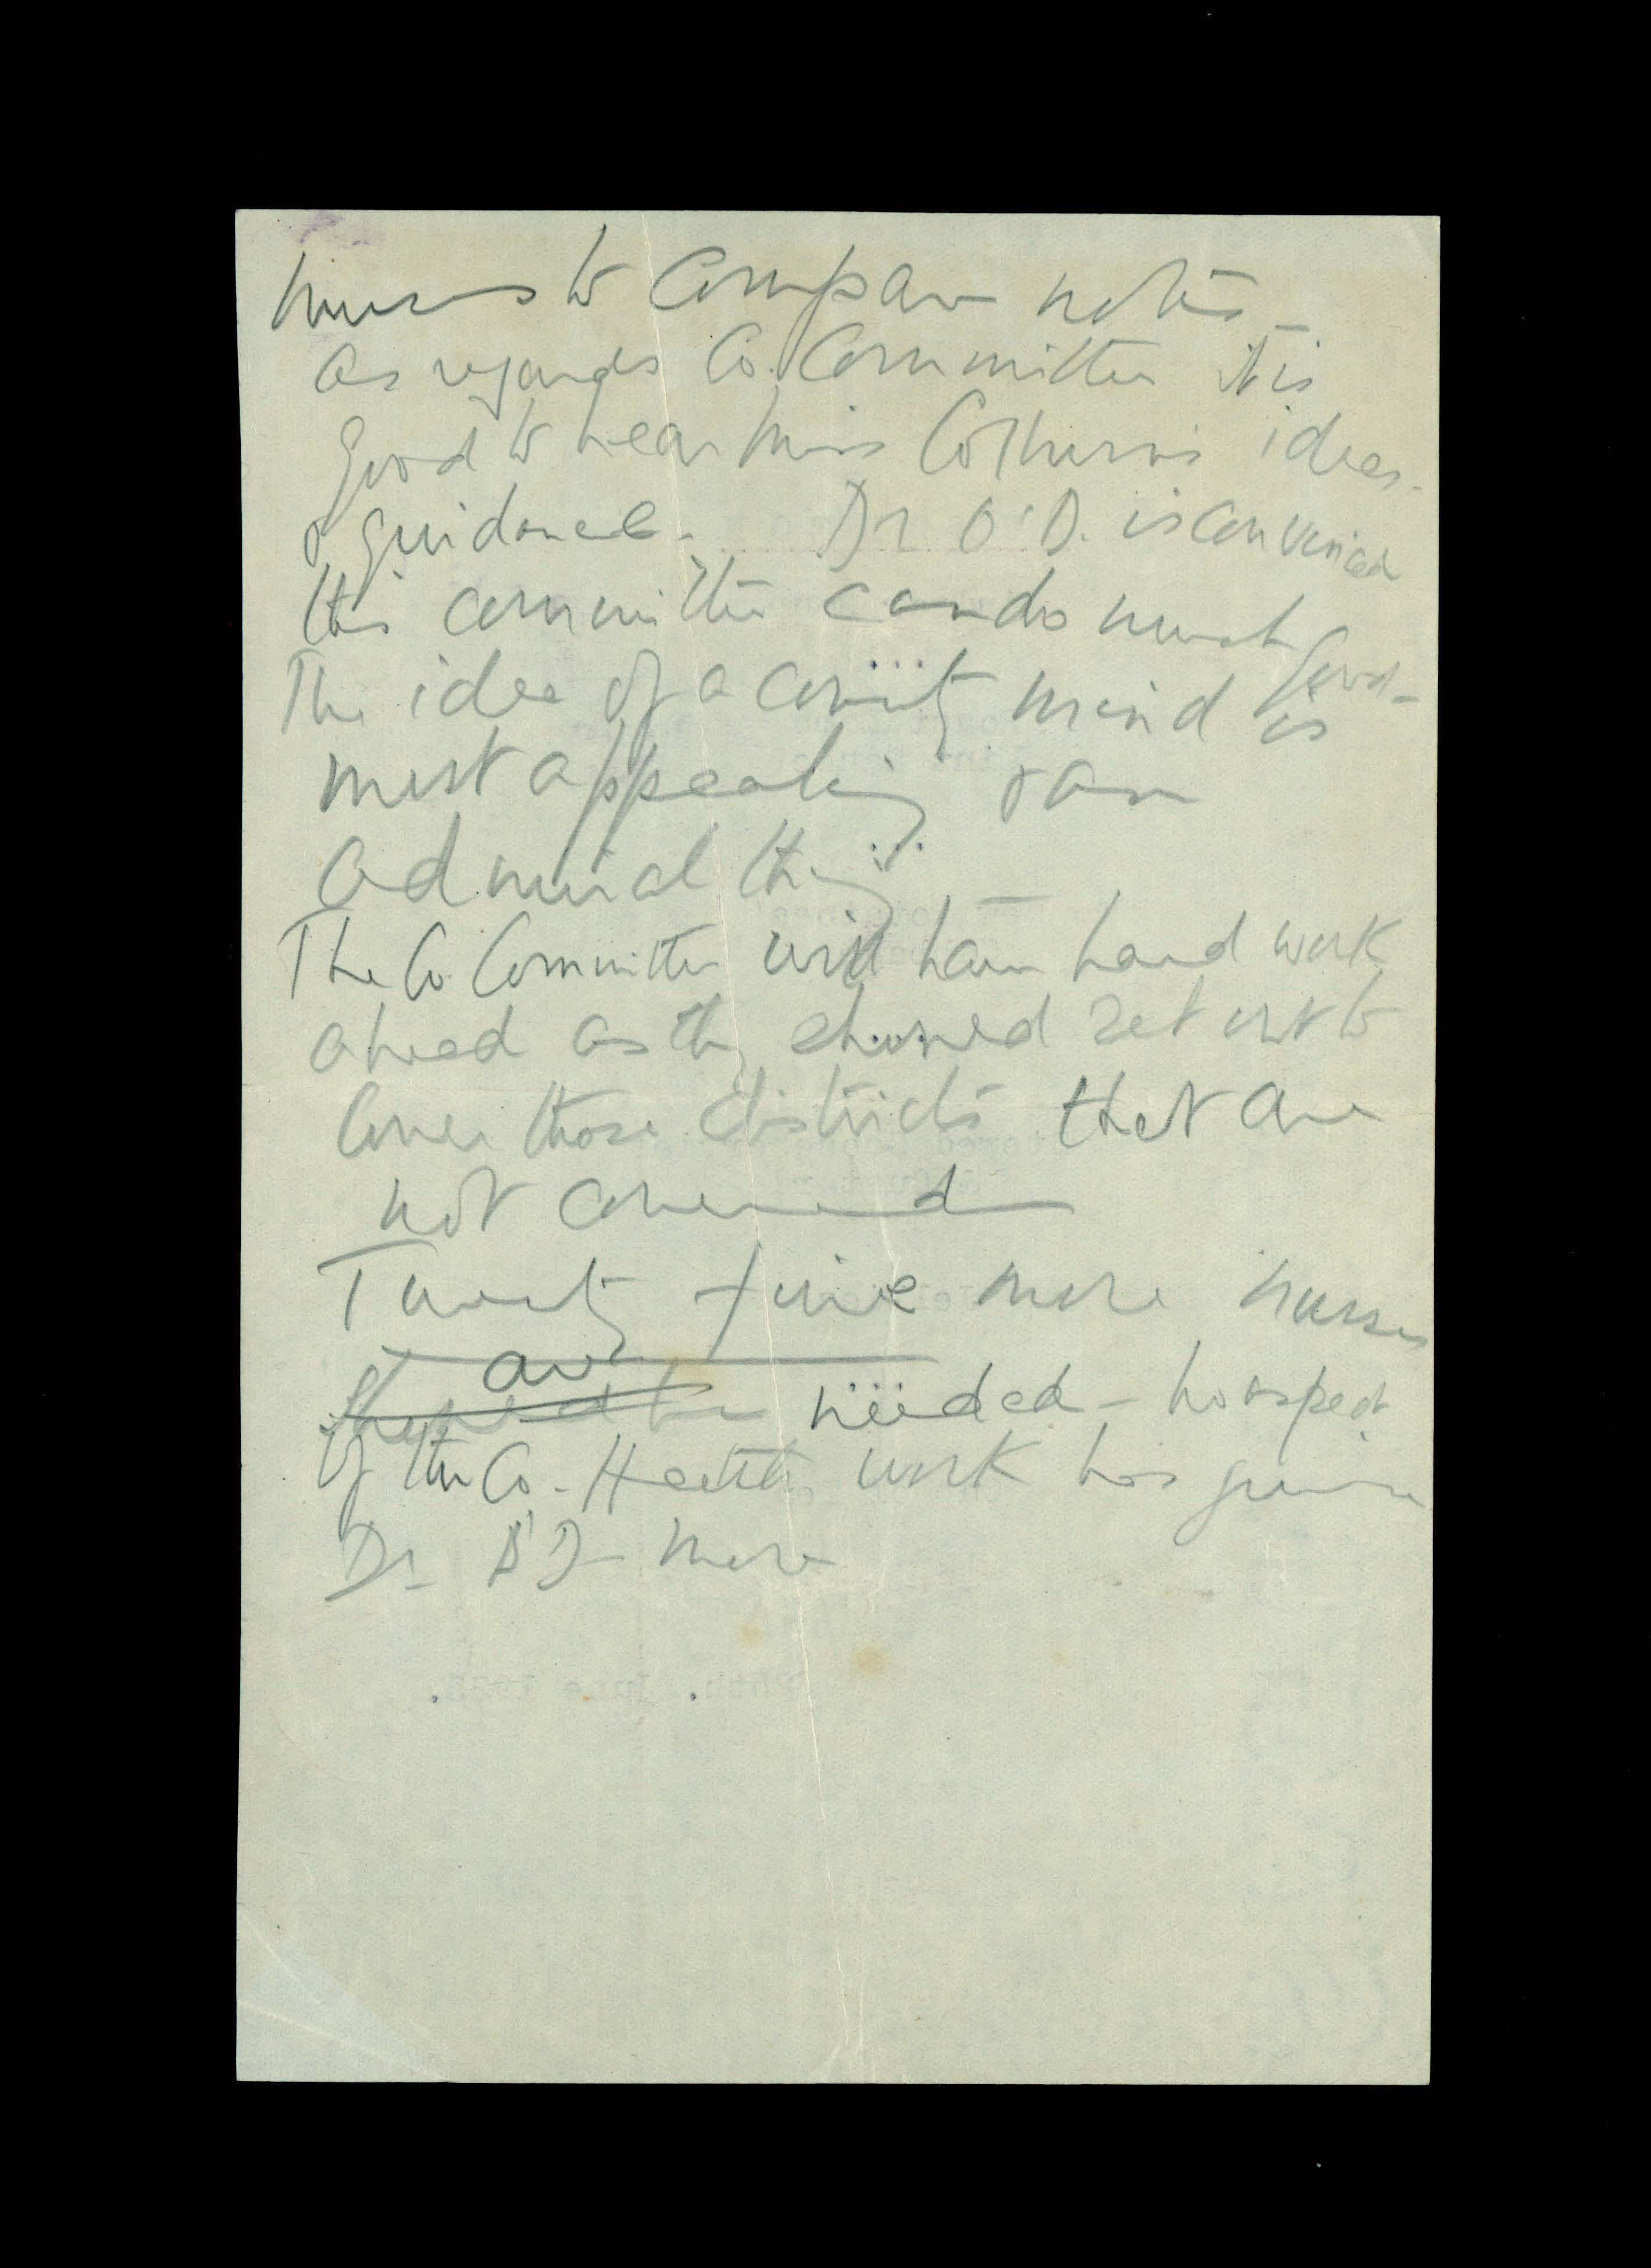 nurses to compare notes -
As regards Co. Committee it is
good to hear Miss Col ideas.
& guidance. Dr O'D. is convinced
this committee can do much good -
The idea of a county mind is
most appealing & an
admiral thing
The Co Committee will have hard work
ahead as they should set out to
cover those districts that are
not covered
Twenty five more nurses
are
needed - no aspect
of the Co. Health work has given
Dr O'D - more
24th. June 19